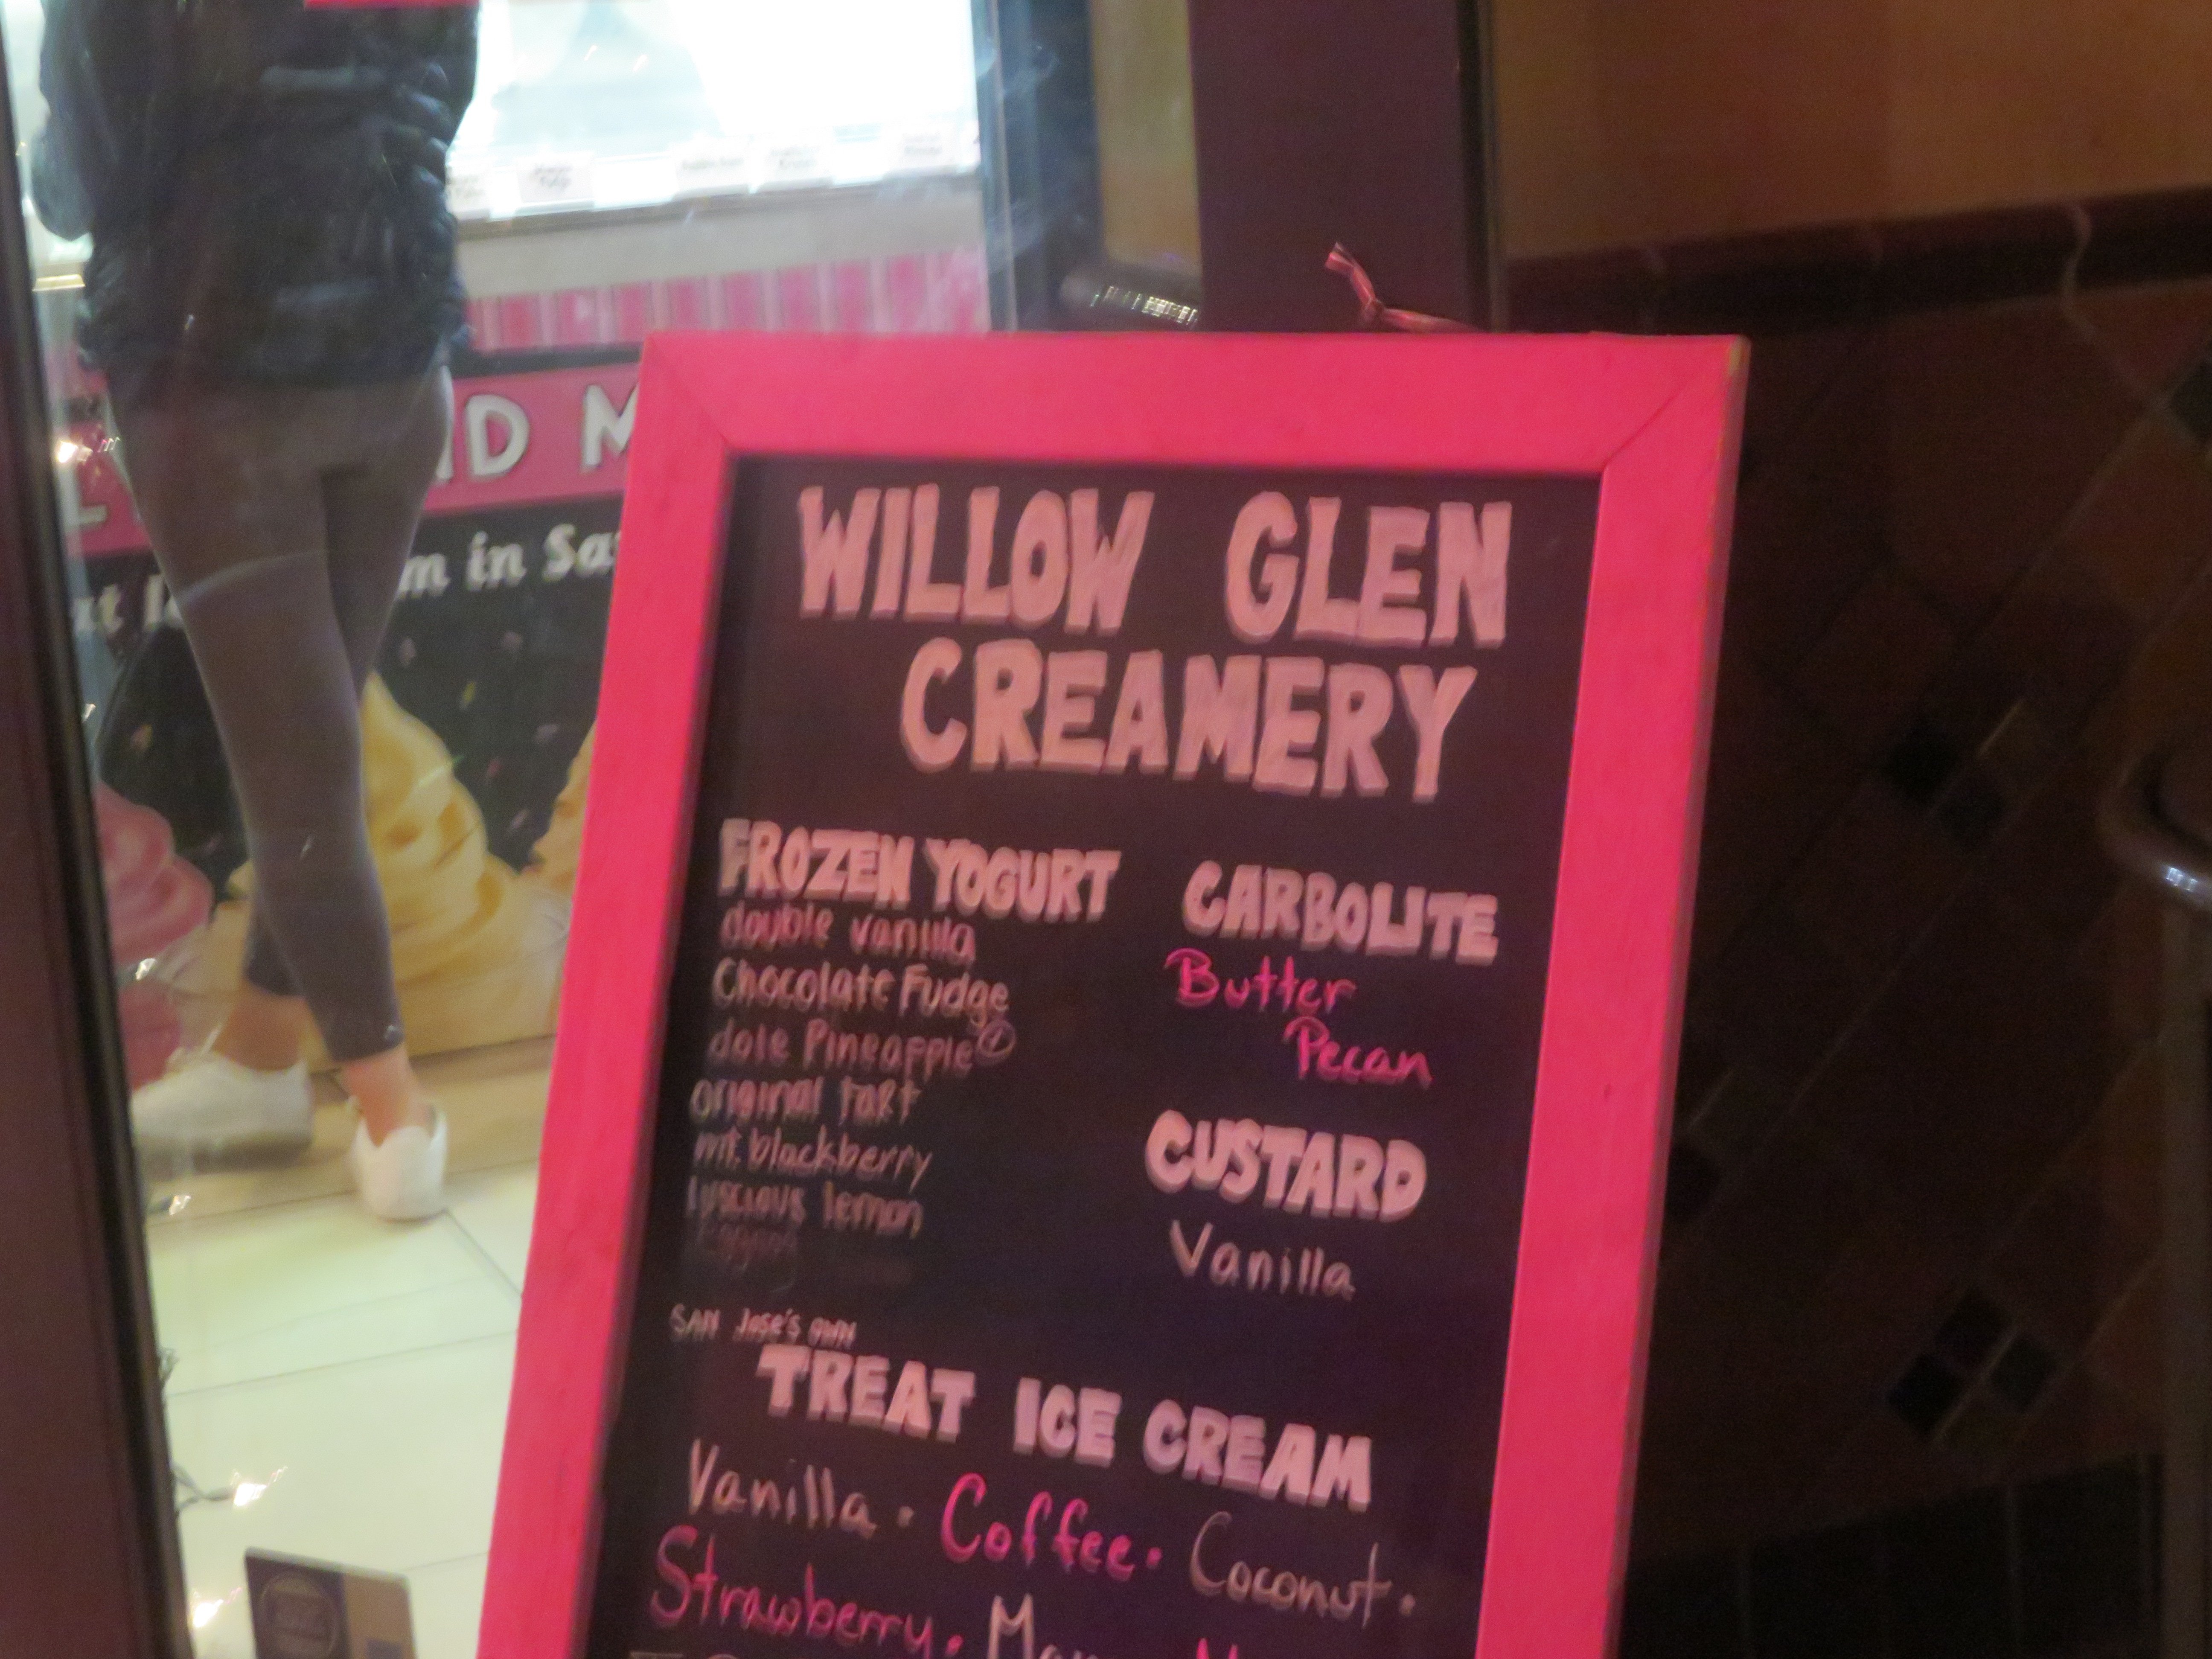 WILLOW GLEN
CREAMERY
FROZEN YOGURT
double vanilla
Chocolate Fudge
dole Pineapple
original tart
mt. blackberry
luscious lemon
CARBOLITE
Butter
Pecan
CUSTARD
Vanilla
SAN Jose's OWN
TREAT ICE CREAM
Vanilla · Coffee · Coconut ·
Strawberry ·
m in